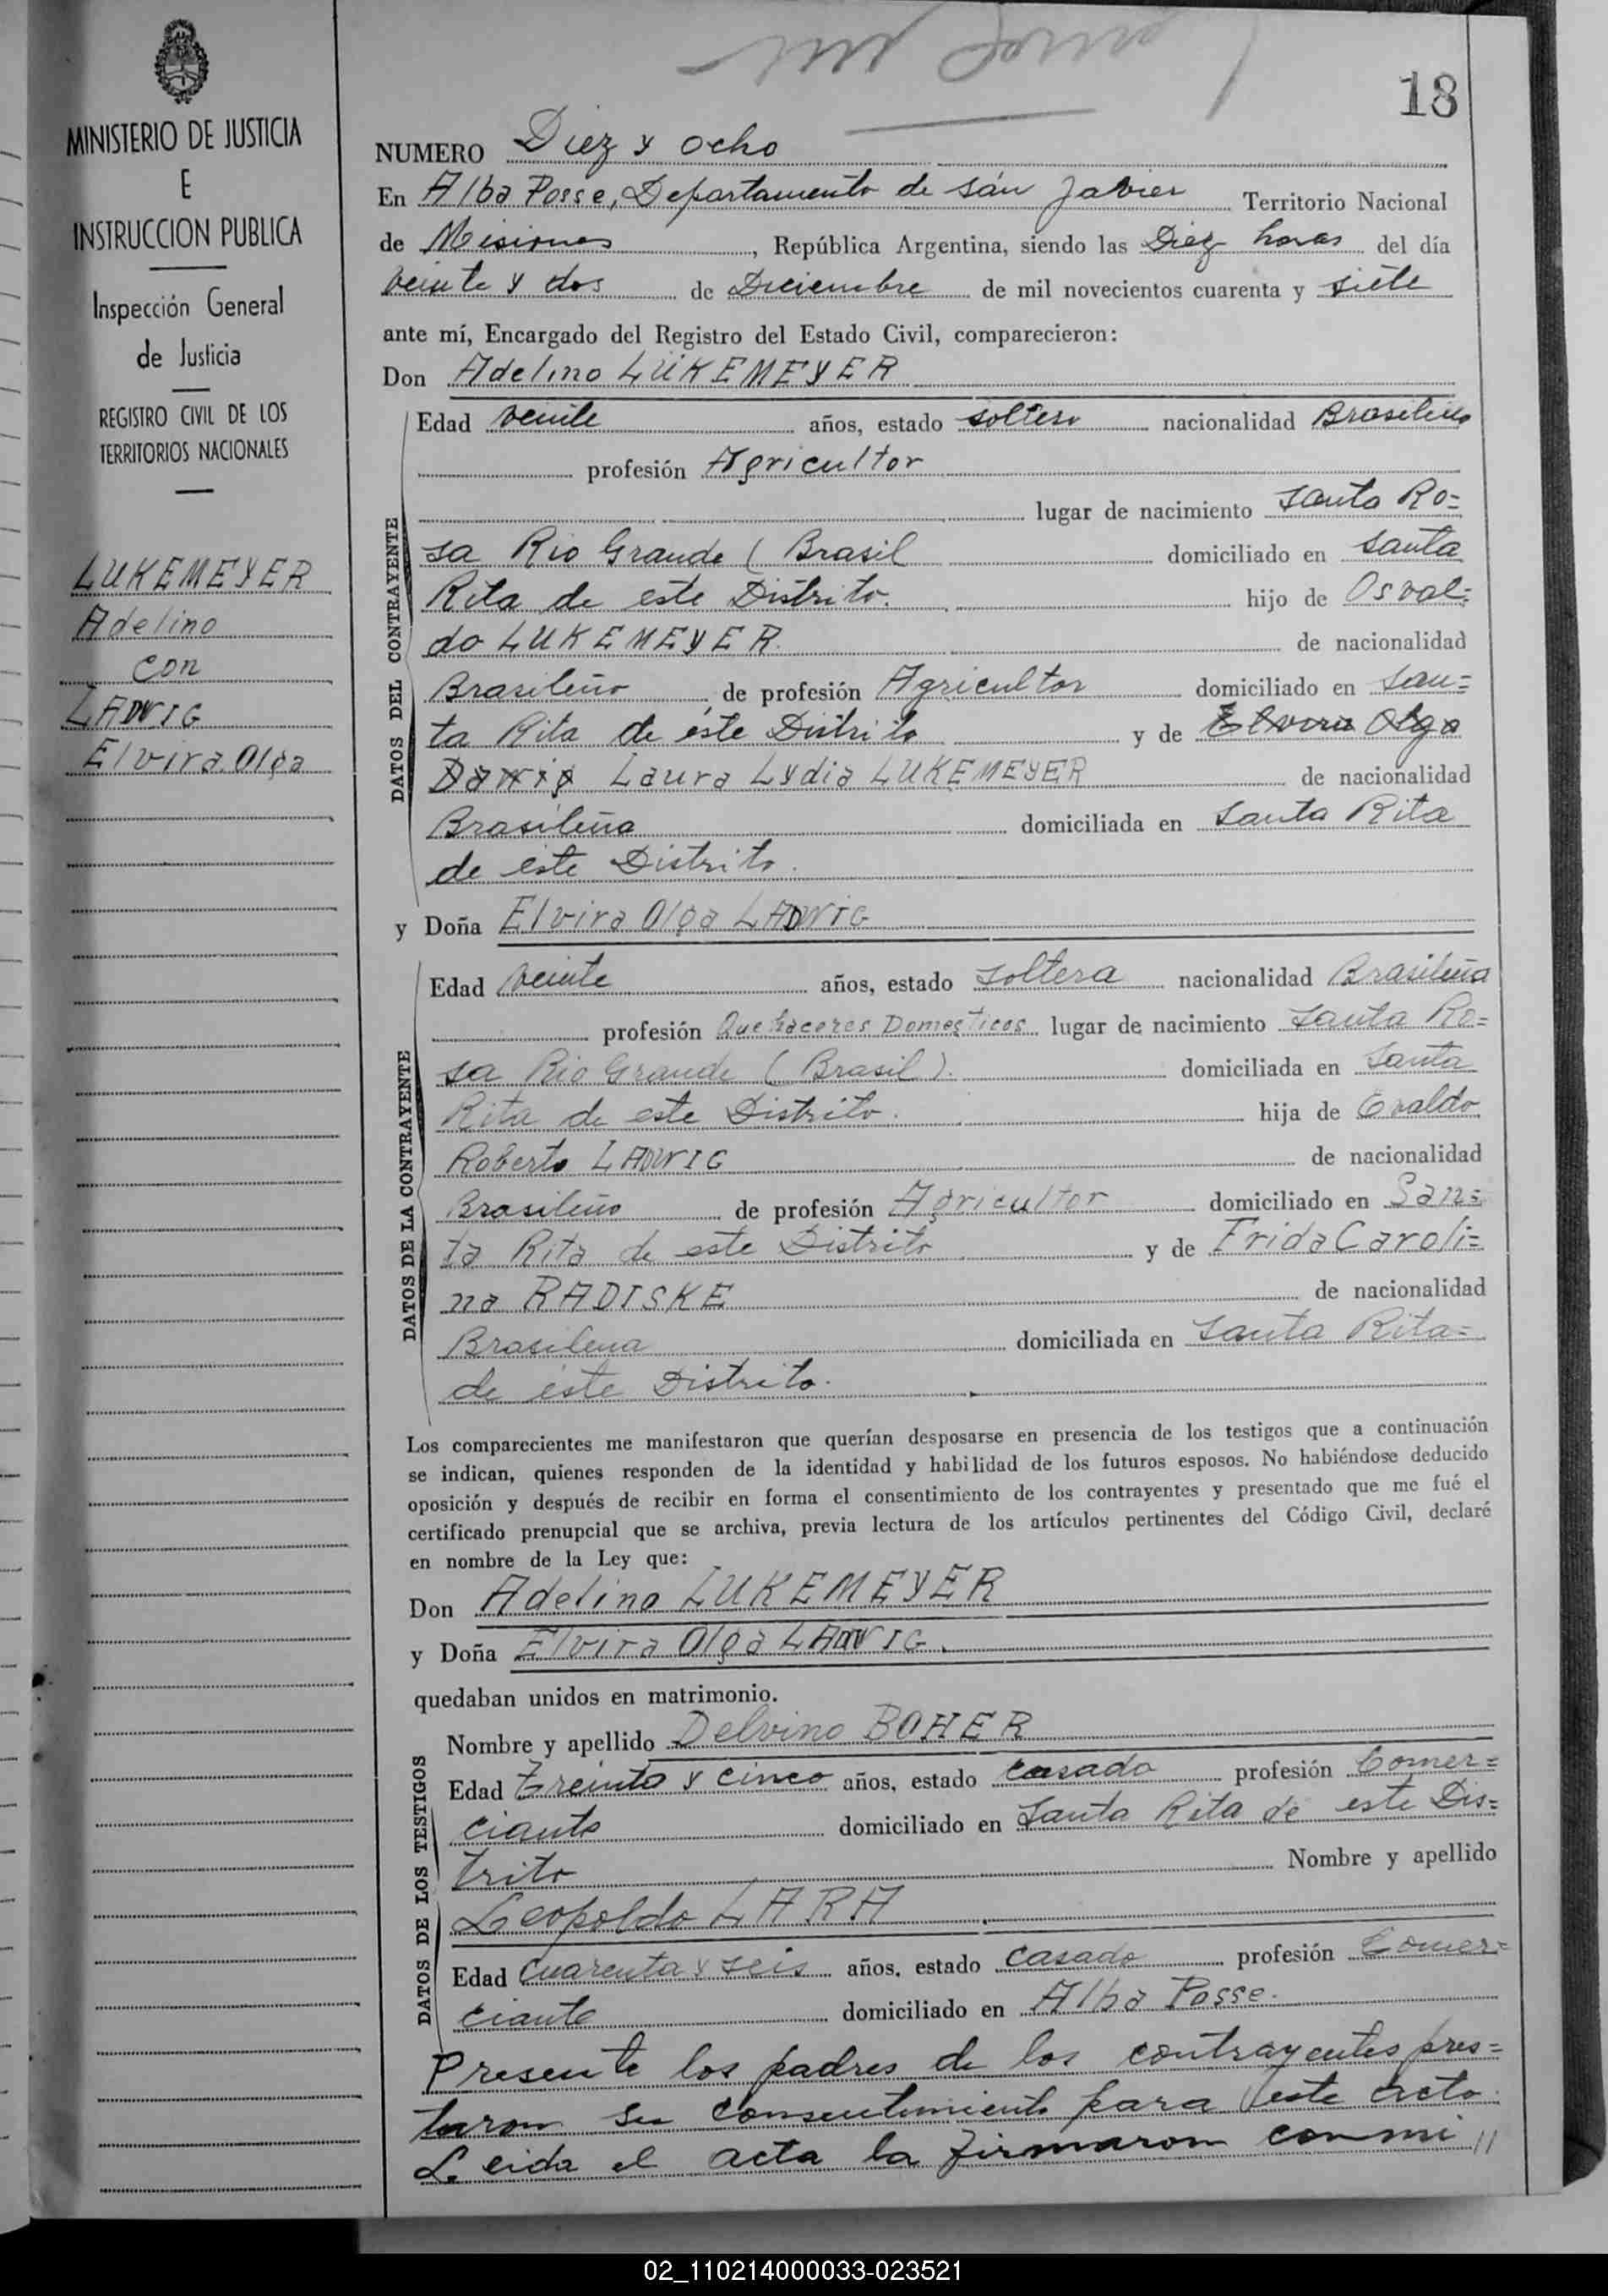 18
MINISTERIO DE JUSTICIA
E
INSTRUCCION PUBLICA
Inspección General
de Justicia
REGISTRO CIVIL DE LOS
TERRITORIOS NACIONALES
LUKEMEYER
Adelino
con
LADWIG
Elvira Olga
NUMERO Diez y ocho
En Alba Posse, Departamento de sán Javier Territorio Nacional
de Misiones, República Argentina, siendo las Diez horas del día
veinte y dos de Diciembre de mil novecientos cuarenta y siete
ante mí, Encargado del Registro del Estado Civil, comparecieron:
Don Adelino LUKEMEYER
DATOS DEL CONTRAYENTE
Edad veinte años, estado soltero nacionalidad Brasileño
profesión Agricultor
lugar de nacimiento Santa Ro=
sa Rio Grande ( Brasil domiciliado en Santa
Rita de este Distrito. hijo de Osval=
do LUKEMEYER. de nacionalidad
Brasileño de profesión Agricultor domiciliado en San=
ta Rita de éste Distrito y de Elvira Olga
Laura Lydia LUKEMEYER de nacionalidad
Brasileña domiciliada en Santa Rita
de éste Distrito.
y Doña Elvira Olga LADWIG
DATOS DE LA CONTRAYENTE
Edad veinte años, estado soltera nacionalidad Brasileña
profesión Quehaceres Domesticos lugar de nacimiento Santa Ro=
sa Rio Grande ( Brasil ). domiciliada en Santa
Rita de este Distrito. hija de Evaldo
Roberto LADWIG de nacionalidad
Brasileño de profesión Agricultor domiciliado en San=
ta Rita de este Distrito y de Frida Caroli=
na RADISKE de nacionalidad
Brasilena domiciliada en Santa Rita=
de éste Distrito.
Los comparecientes me manifestaron que querían desposarse en presencia de los testigos que a continuación
se indican, quienes responden de la identidad y habilidad de los futuros esposos. No habiéndose deducido
oposición y después de recibir en forma el consentimiento de los contrayentes y presentado que me fué el
certificado prenupcial que se archiva, previa lectura de los artículos pertinentes del Código Civil, declaré
en nombre de la Ley que:
Don Adelino LUKEMEYER
y Doña Elvira Olga LADWIG.
quedaban unidos en matrimonio.
DATOS DE LOS TESTIGOS
Nombre y apellido Delvino BOHER
Edad Treinta y cinco años, estado casado profesión Comer=
ciante domiciliado en Santa Rita de este Dis=
trito Nombre y apellido
Leopoldo LARA
Edad Cuarenta y seis años, estado casado profesión Comer=
ciante domiciliado en Alba Posse.
Presente los padres de los contrayentes pres=
taron su consentimiento para este acto.
Leida el acta la firmaron conmi //
02_110214000033-023521